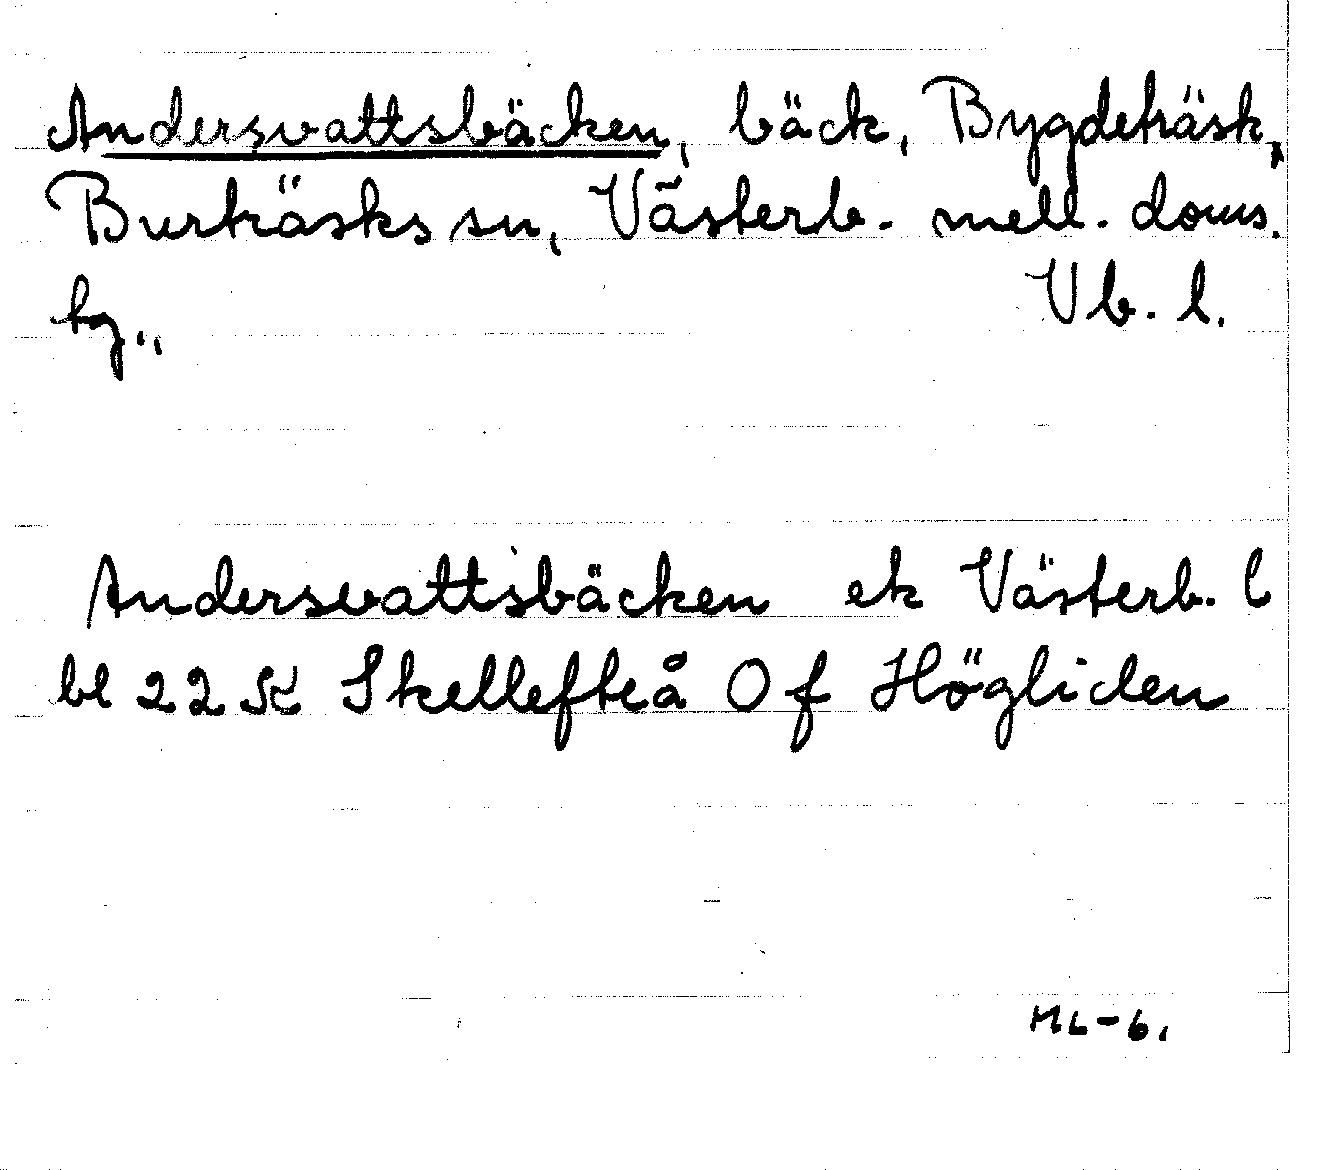 Andersvattsbäcken, bäck, Bygdeträsk,
Burträsks sn, Västerb. mell. doms.
hg.,
Vb. l.
Andersvattsbäcken ek Västerb. l
bl 22 K Skellefteå O f Högliden